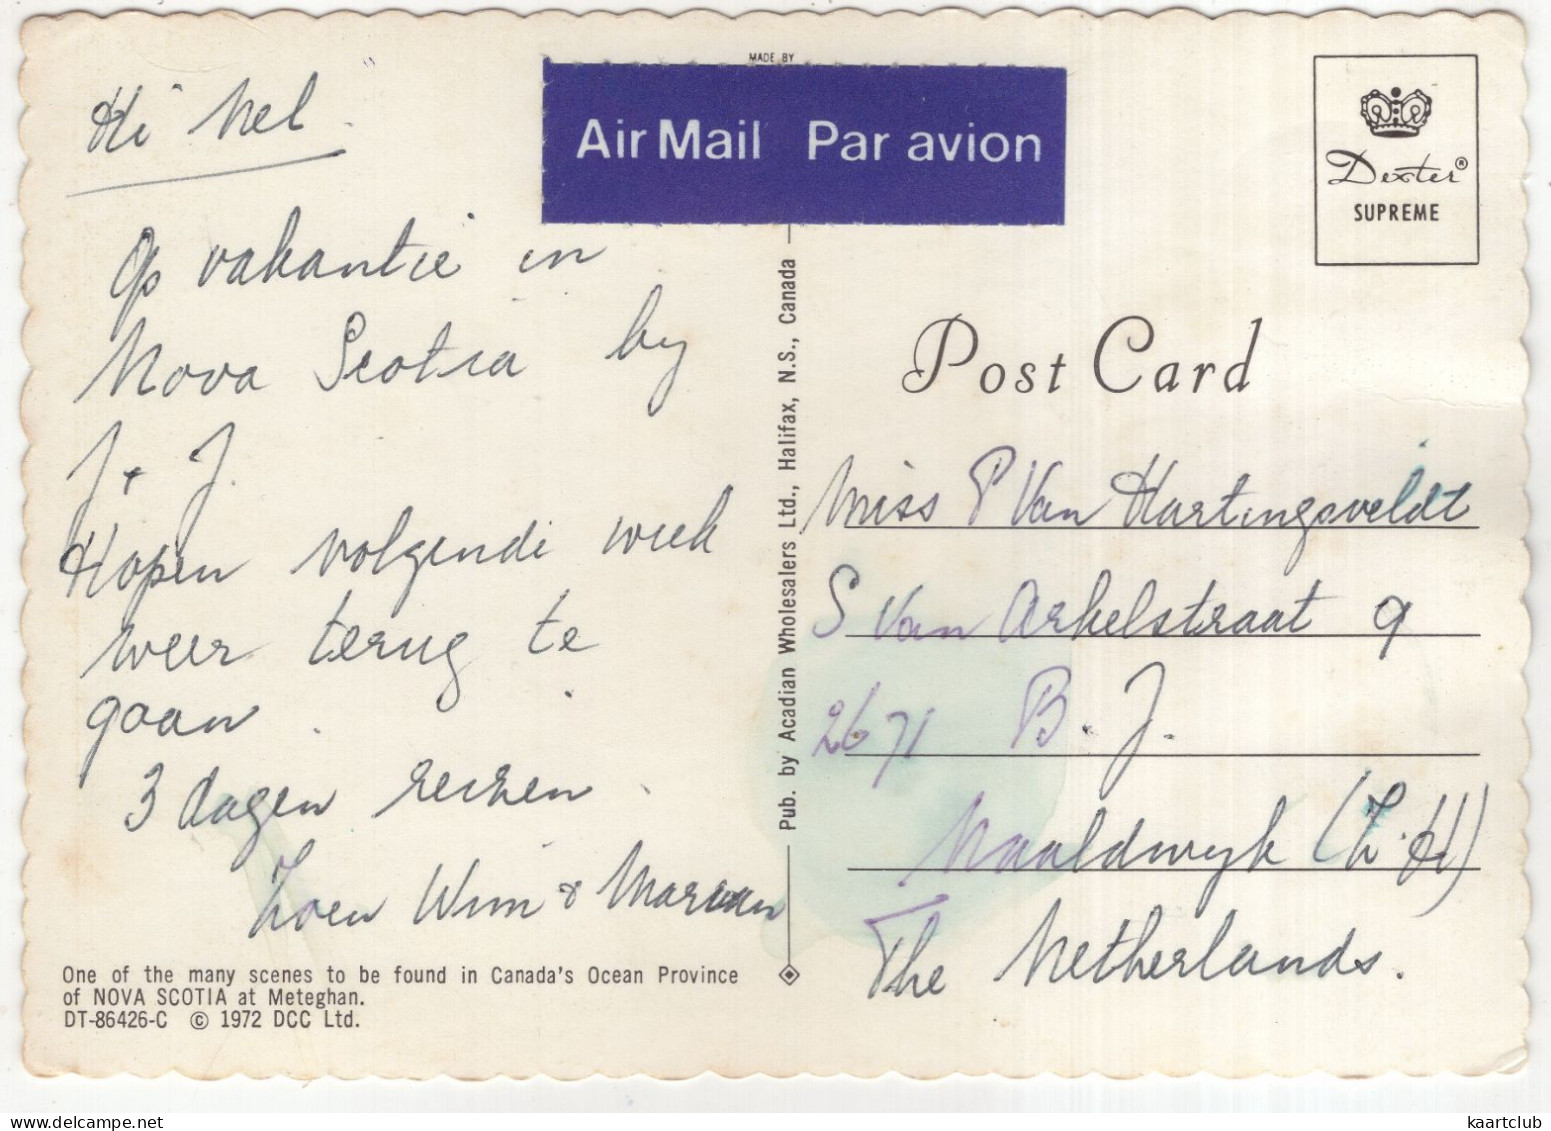 Hi Nel
Op vakantie in
Nova Scotia by
J + J.
Hopen volgende week
weer terug te
gaan.
3 dagen reizen.
Zoen Wim & Marian
One of the many scenes to be found in Canada's Ocean Province
of NOVA SCOTIA at Meteghan.
DT-86426-C © 1972 DCC Ltd.
MADE BY
Air Mail Par avion
Pub. by Acadian Wholesalers Ltd., Halifax, N.S., Canada
Dexter®
SUPREME
Post Card
Miss P Van Hartingsveldt
S Van Arkelstraat 9
2671 B.J.
Naaldwyk (Z.H)
The Netherlands.
kaartclub